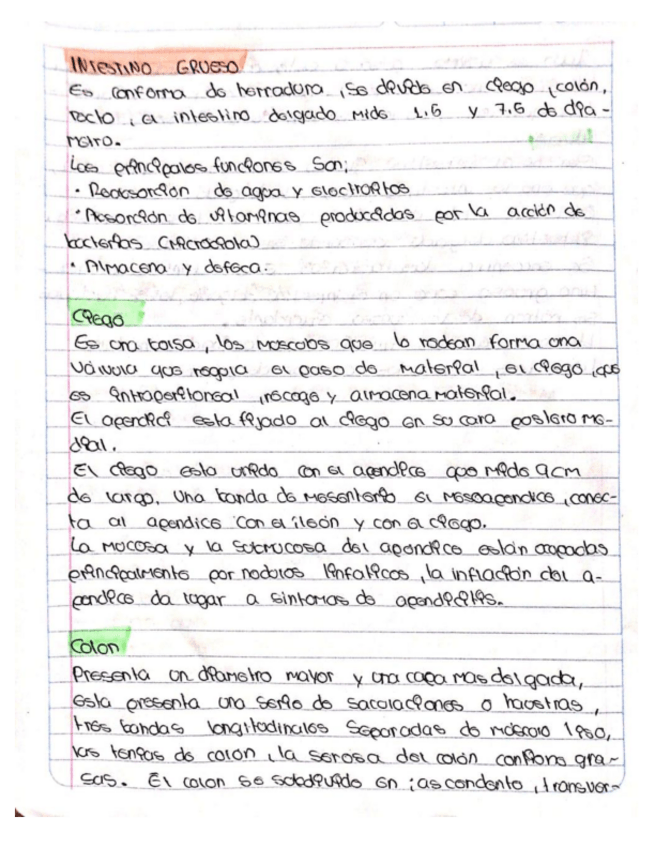 INTESTINO GRUESO
Es conforma de herradura, se divide en ciego, colón,
recto, el intestino delgado mide 1.5 y 7.5 de diá-
metro.
Las principales funciones son;
· Reabsorción de agua y electrolitos
· Absorción de vitaminas producidas por la acción de
bacterias (microbiota)
· Almacena y defeca.
Ciego
Es una bolsa, los músculos que lo rodean forma una
válvula que regula el paso de material, el ciego, que
es intraperitoneal, recoge y almacena material.
El apendice esta fijado al ciego en su cara postero me-
dial.
El ciego esta unido con el apendice que mide 9cm
de largo. Una banda de mesenterio el mesoapendice, conec-
ta al apendice con el íleón y con el ciego.
La mucosa y la submucosa del apendice están ocupadas
principalmente por nodulos linfaticos, la inflación del a-
pendice da lugar a sintomas de apendicitis.
Colon
Presenta un diametro mayor y una capa mas delgada,
esta presenta una serie de saculaciones o haustras,
tres bandas longitudinales separadas de músculo liso,
las tenias de colón, la serosa del colón contiene gra-
sas. El colon se subdivide en: ascendente, transver-